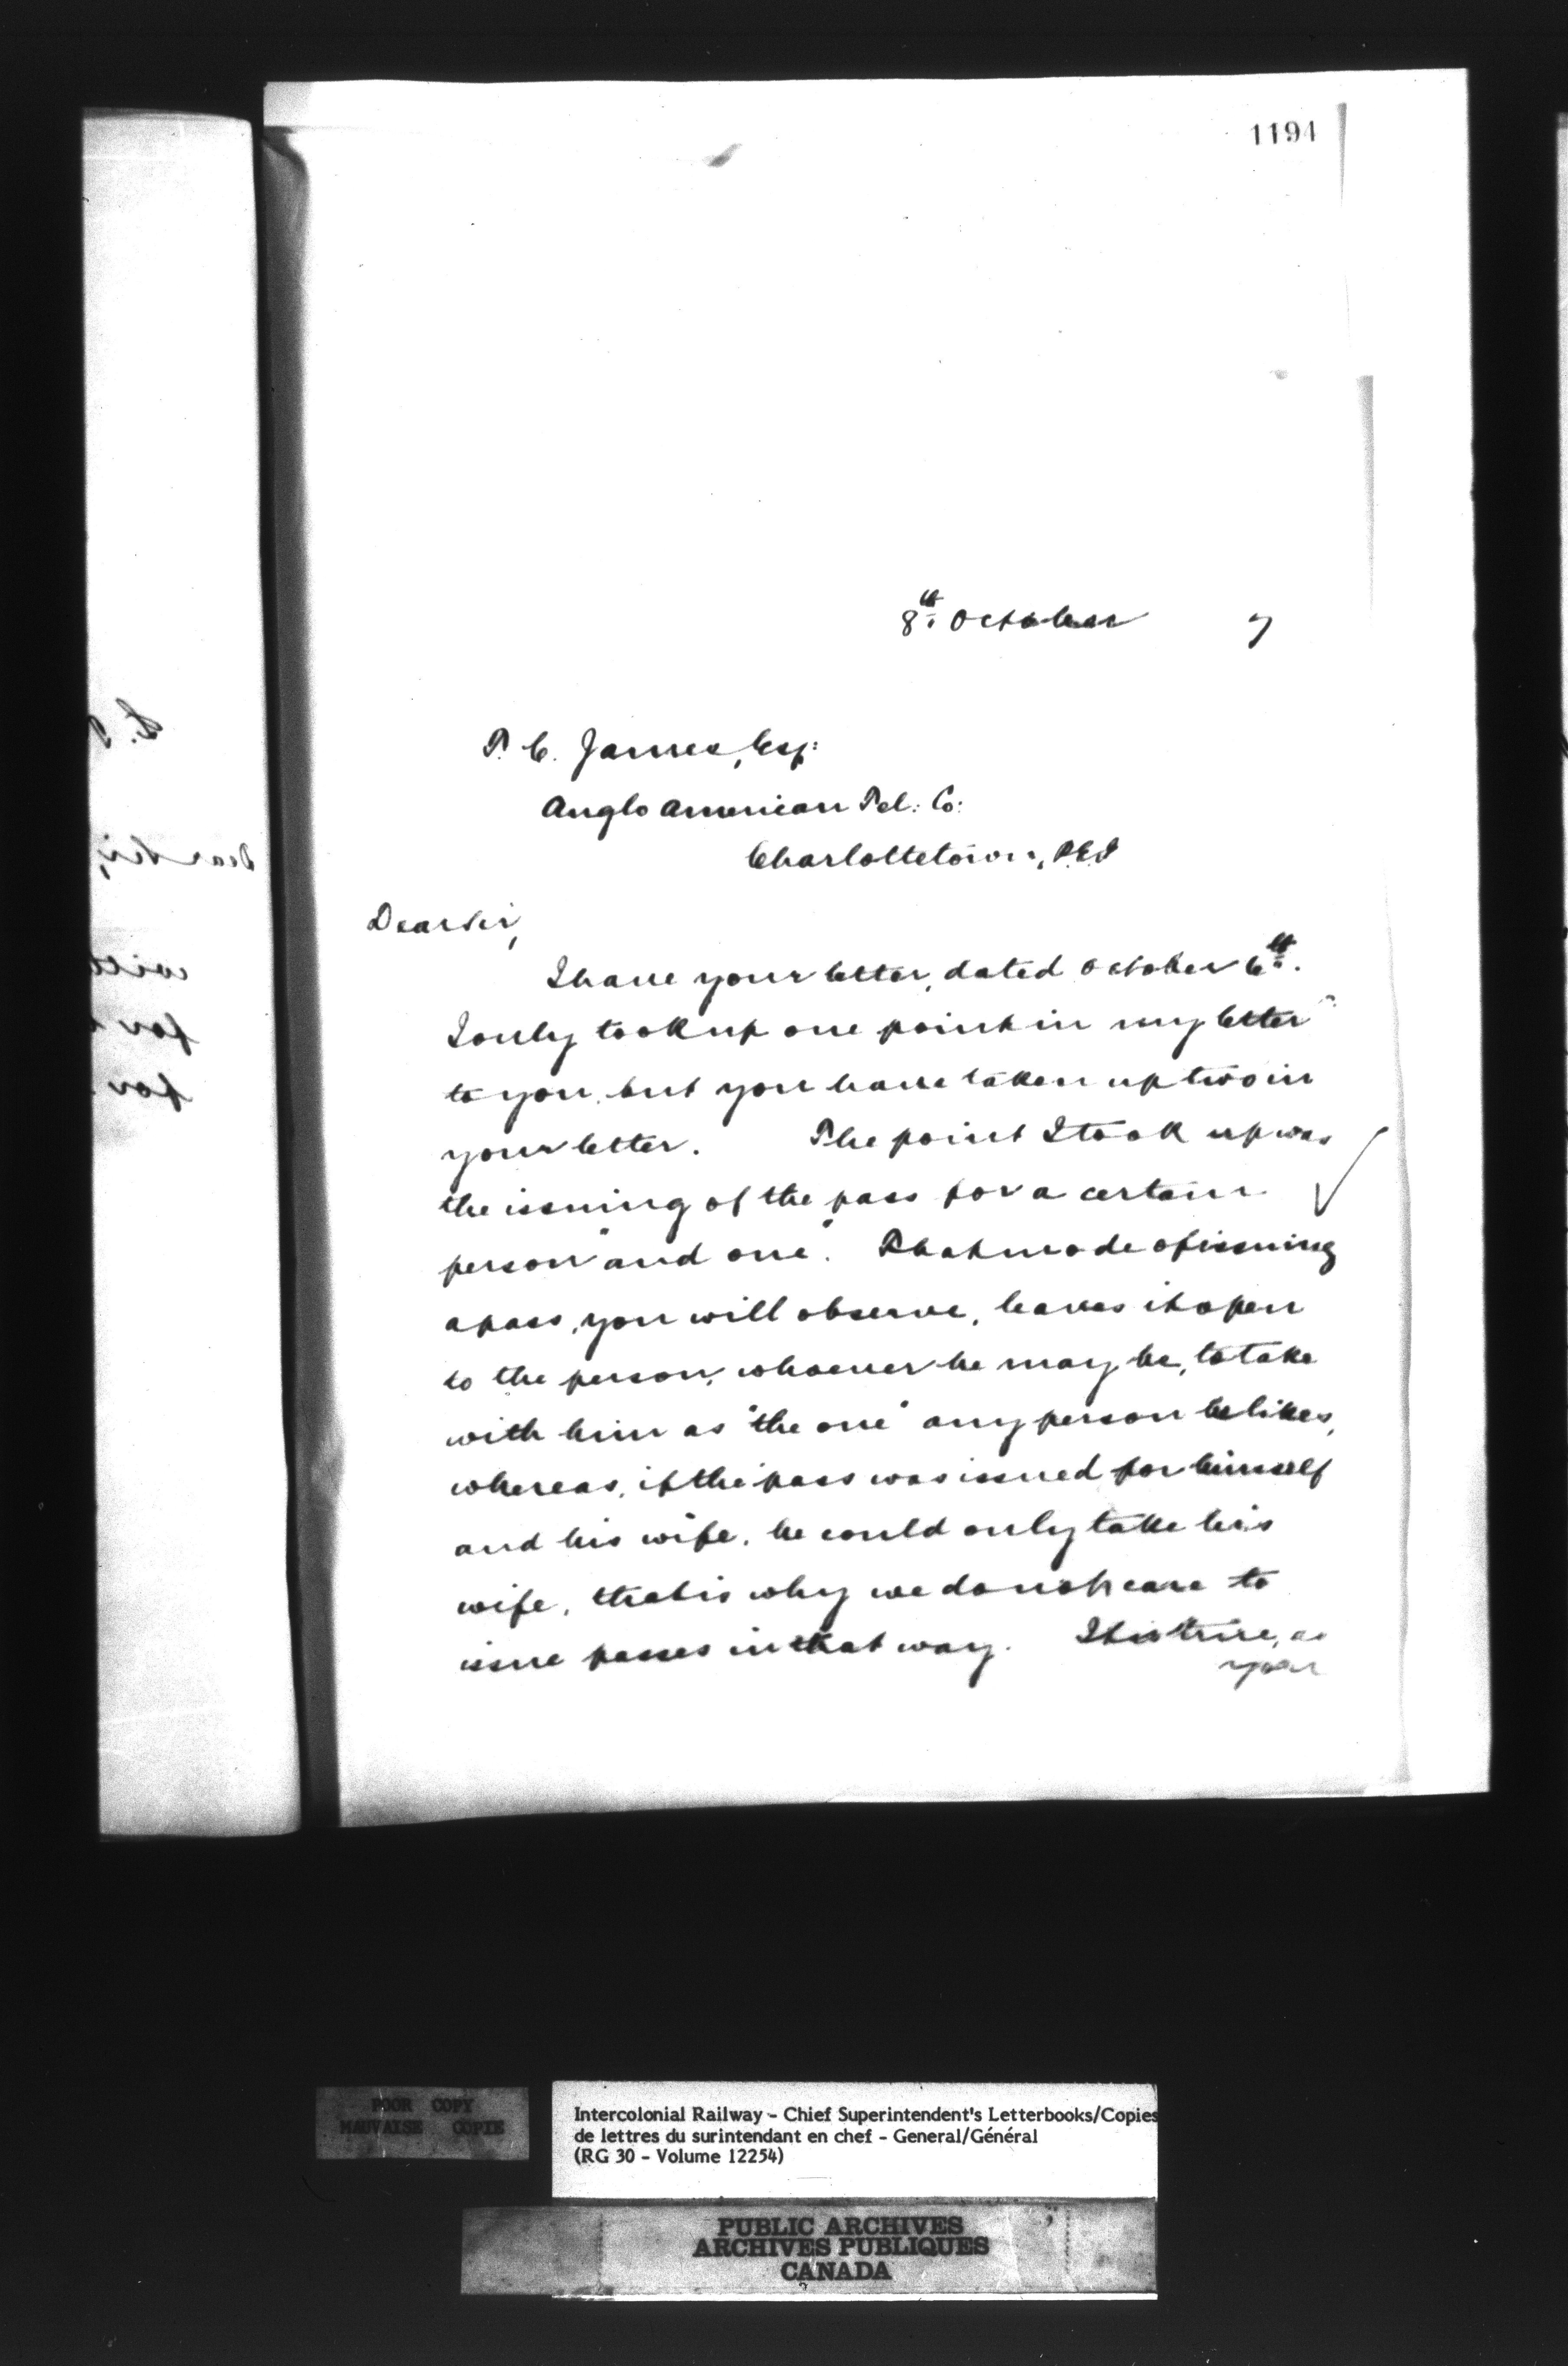 1194
8th October 7
T. C. James, Esq:
Anglo American Tel: Co:
Charlottetown, P.E.I
Dear Sir,
I have your letter, dated October 6th.
I only took up one point in my letter
to you, but you have taken up two in
your letter. The point I took up was
the issuing of the pass for a certain
person "and one". That mode of issuing
a pass, you will observe, leaves it open
to the person, whoever he may be, to take
with him as "the one" any person he likes,
whereas, if the pass was issued for himself
and his wife, he could only take his
wife, that is why we do not care to
issue passes in that way. It is true, as
you
Dear Sir,
will
for
for
POOR COPY
MAUVAISE COPIE
Intercolonial Railway - Chief Superintendent's Letterbooks/Copies
de lettres du surintendant en chef - General/Général
(RG 30 - Volume 12254)
PUBLIC ARCHIVES
ARCHIVES PUBLIQUES
CANADA